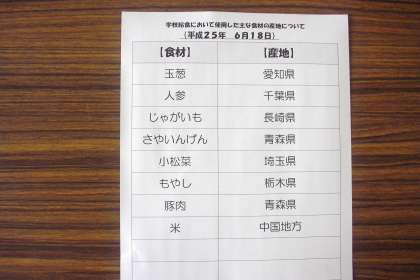 学校給食において使用した主な食材の産地について
(平成25年　6月18日)
【食材】　【産地】
玉葱　愛知県
人参　千葉県
じゃがいも　長崎県
さやいんげん　青森県
小松菜　埼玉県
もやし　栃木県
豚肉　青森県
米　中国地方